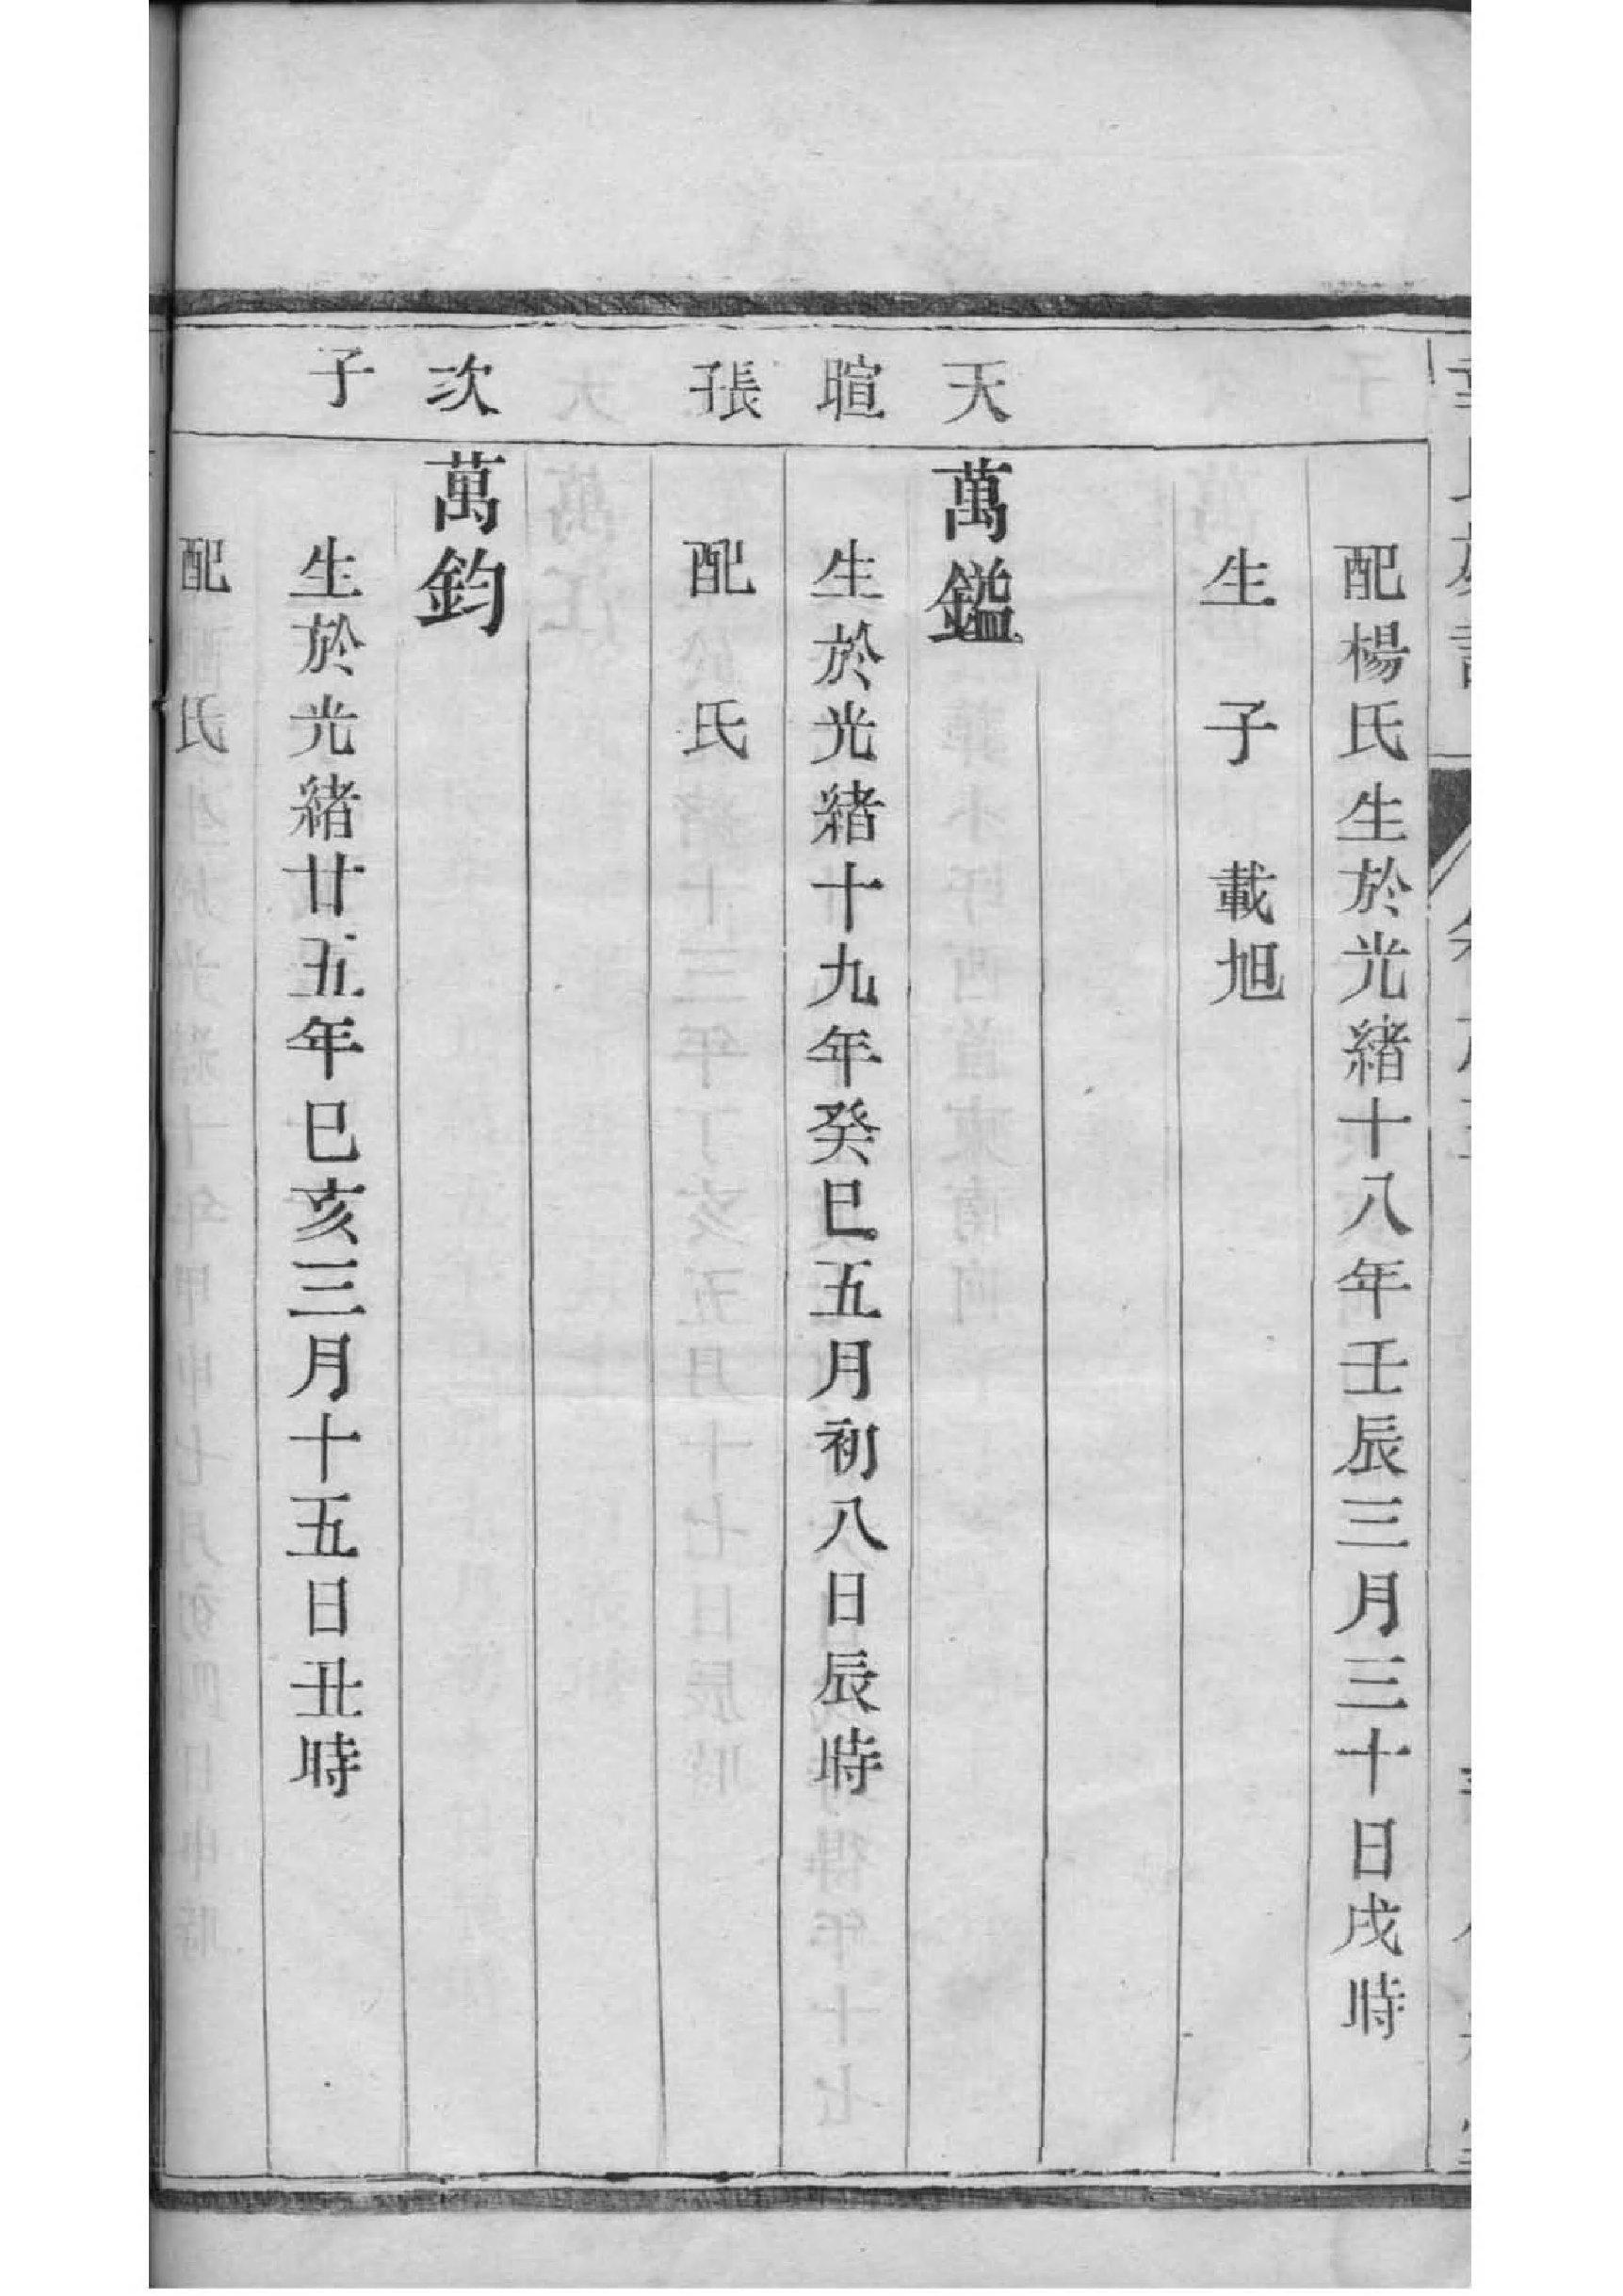 配楊氏生於光緒十八年壬辰三月三十日戌時
生子 載旭
天 萬鎰
暄 生於光緒十九年癸巳五月初八日辰時
長子 配 氏
次 萬鈞
子 生於光緒廿五年巳亥三月十五日丑時
配 氏